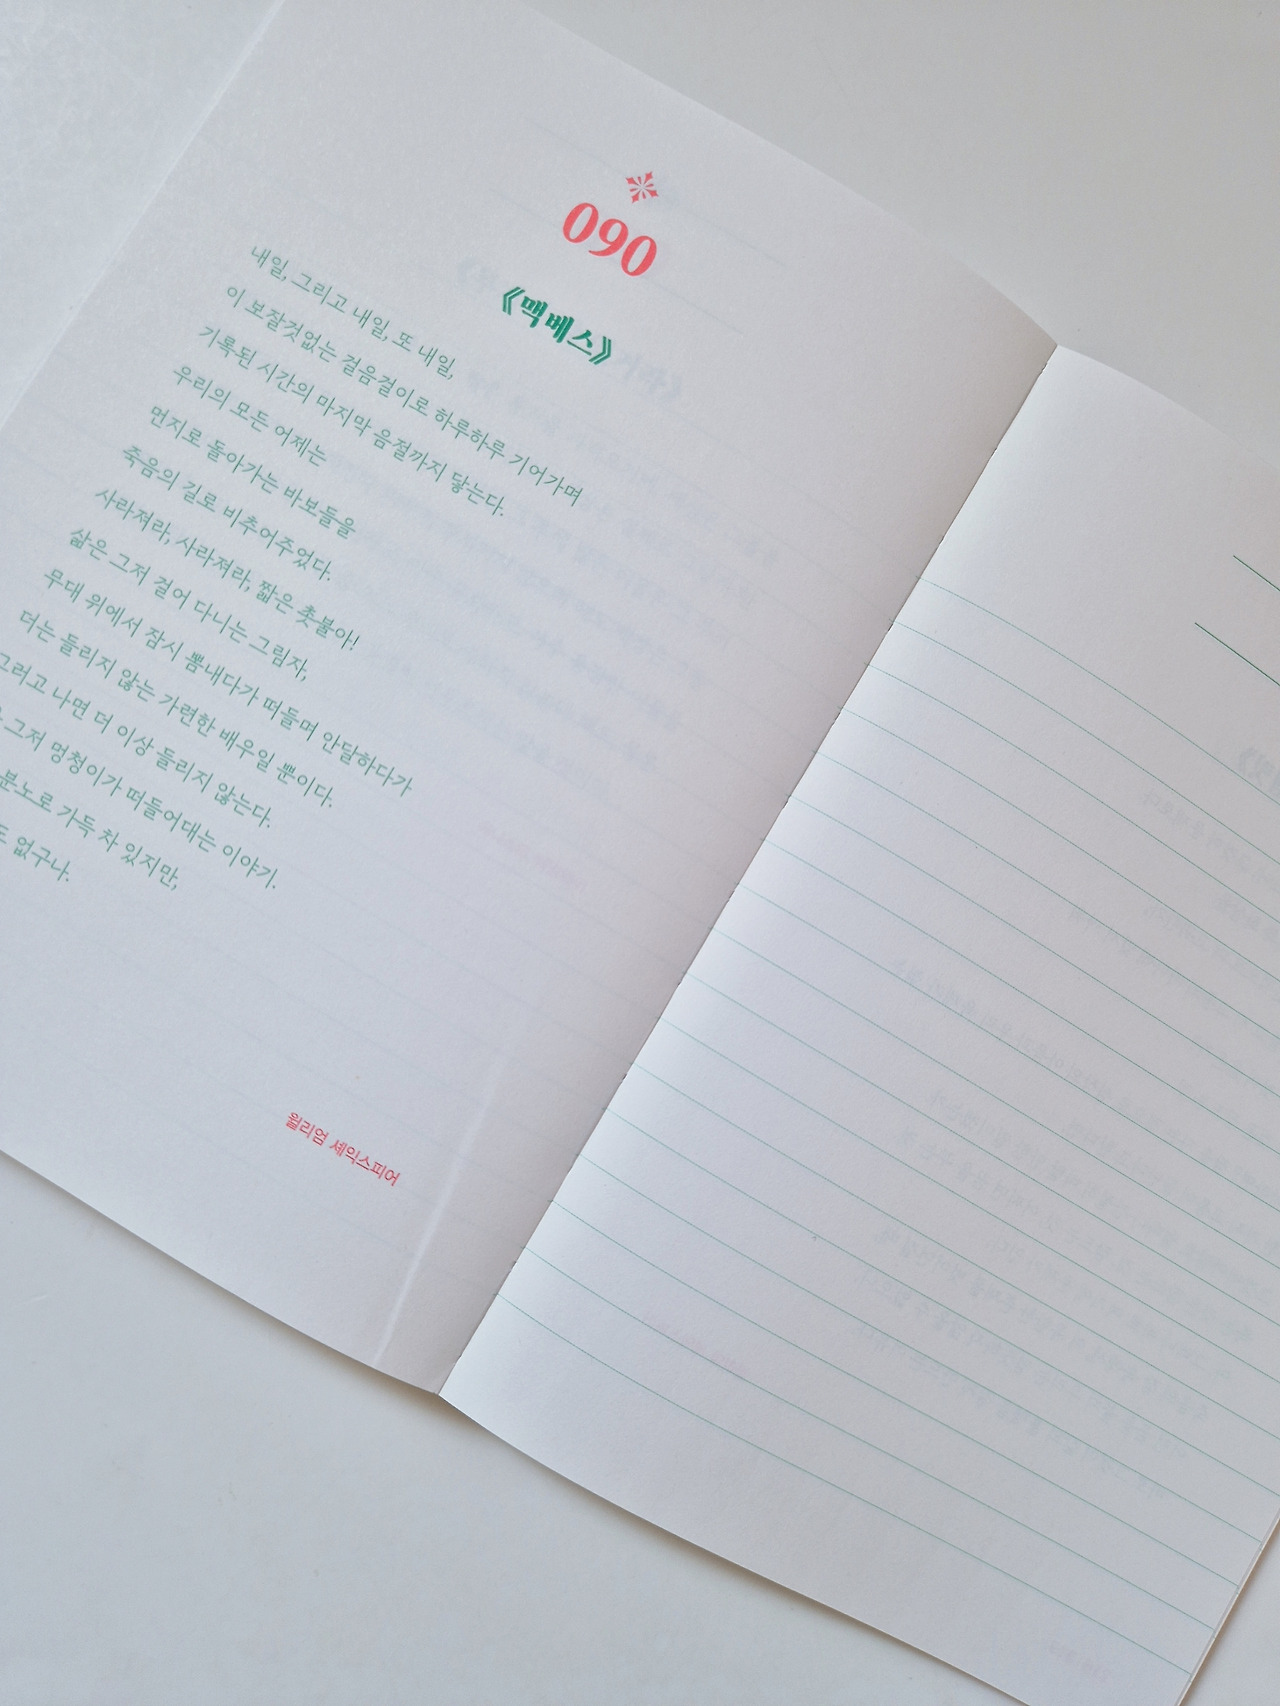 090
《맥베스》
내일, 그리고 내일, 또 내일,
이 보잘것없는 걸음걸이로 하루하루 기어가며
기록된 시간의 마지막 음절까지 닿는다.
우리의 모든 어제는
먼지로 돌아가는 바보들을
죽음의 길로 비추어주었다.
사라져라, 사라져라, 짧은 촛불아!
삶은 그저 걸어 다니는 그림자,
무대 위에서 잠시 뽐내다가 떠들며 안달하다가
더는 들리지 않는 가련한 배우일 뿐이다.
그러고 나면 더 이상 들리지 않는다.
그저 멍청이가 떠들어대는 이야기.
분노로 가득 차 있지만,
없구나.
윌리엄 셰익스피어